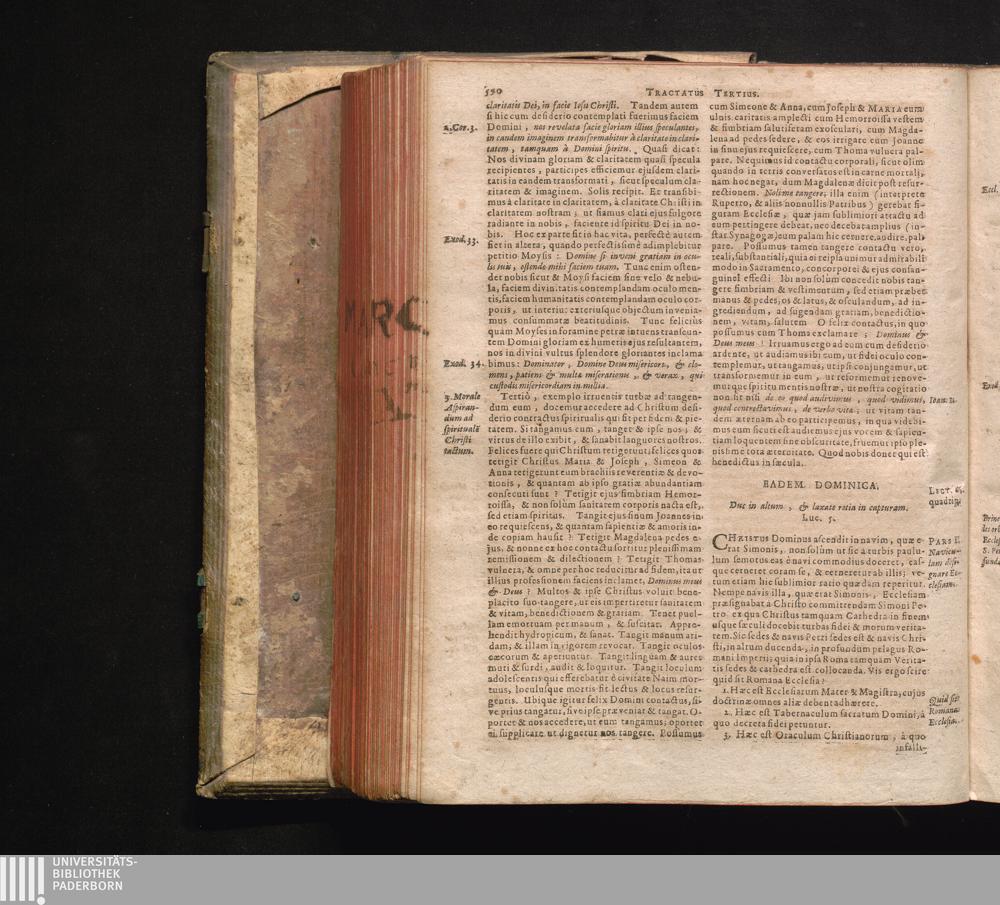 590 TRACTATUS TERTIUS.
claritatis Dei, in facie Iesu Christi. Tandem autem
si hic cum desiderio contemplati fuerimus faciem
2. Cor. 3.
Domini, nos revelata facie gloriam illius speculantes,
in eandem imaginem transformabitur à claritate in clari-
tatem, tamquam à Domini spiritu. Quasi dicat:
Nos divinam gloriam & claritatem quasi specula
recipientes, participes efficiemur ejusdem clari-
tatis in eandem transformati, sicut speculum cla-
ritatem & imaginem Solis recipit. Et transibi-
mus à claritate in claritatem, à claritate Christi in
claritatem nostram; ut fiamus clari ejus fulgore
radiante in nobis, faciente id spiritu Dei in no-
bis. Hoc ex parte fit in hac vita, perfectè autem
Exod. 33.
fiet in altera, quando perfectissimè adimplebitur
petitio Moysis: Domine si inveni gratiam in ocu-
lis tuis, ostende mihi faciem tuam. Tunc enim osten-
der nobis sicut & Moysi faciem sine velo & nebu-
la, faciem divinitatis contemplandam oculo men-
tis, faciem humanitatis contemplandam oculo cor-
poris, ut interius exteriusque objectum invenia-
mus consummatæ beatitudinis. Tunc felicius
quam Moyses in foramine petræ intuens transeun-
tem Domini gloriam ex humeris ejus resultantem,
nos in divini vultus splendore gloriantes inclama
Exod. 34.
bimus: Dominator, Domine Deus misericors, & cle-
mens, patiens & multæ miserationis, & verax, qui
custodis misericordiam in millia.
3. Morale
Aspiran-
dum ad
spiritualē
Christi
tactum.
Tertiò, exemplo irruentis turbæ ad tangen-
dum eum, docemur accedere ad Christum desi-
derio contractus spiritualis qui fit per fidem & pie-
tatem. Si tangamus eum, tanget & ipse nos, &
virtus de illo exibit, & sanabit languores nostros.
Felices fuere qui Christum tetigerunt, felices quos
tetigit Christus Maria & Joseph, Simeon &
Anna tetigerunt eum brachiis reverentiæ & devo-
tionis, & quantam ab ipso gratiæ abundantiam
consecuti sunt? Tetigit ejus fimbriam Hemor-
roissa, & non solùm sanitatem corporis nacta est,
sed etiam spiritus. Tangit ejus sinum Joannes in
eo requiescens, & quantam sapientiæ & amoris in-
de copiam hausit? Tetigit Magdalena pedes e-
jus, & nonne ex hoc contactu sortitur plenissimam
remissionem & dilectionem? Tetigit Thomas
vulnera, & omne per hoc reducitur ad fidem, ita ut
illius professionem faciens inclamet, Dominus meus
& Deus? Multos & ipse Christus voluit bene-
placito suo tangere, ut eis impertiretur sanitatem
& vitam, benedictionem & gratiam. Tenet puel-
lam emortuam per manum, & suscitat. Appre-
hendit hydropicum, & sanat. Tangit manum ari-
dam, & illam in rigorem revocat. Tangit oculos
cæcorum & aperiuntur. Tangit linguam & aures
muti & surdi, audit & loquitur. Tangit loculum
adolescentis qui efferebatur è civitate Naim mor-
tuus, loculusque mortis fit lectus & locus resur-
gentis. Ubique igitur felix Domini contactus, si-
ve prius tangatur, sive ipse præveniat & tangat. O-
portet & nos accedere, ut eum tangamus; oportet
ei supplicare ut dignetur nos tangere. Possumus
cum Simeone & Anna, cum Joseph & MARIA eum
ulnis caritatis amplecti cum Hemorroissa vestem
& fimbriam salutiferam exosculari, cum Magda-
lena ad pedes sedere, & eos irrigare cum Joanne
in sinu ejus requiescere, cum Thoma vulnera pal-
pare. Nequimus id contactu corporali, sicut olim
quando in terris conversatus est in carne mortali,
nam hoc negat, dum Magdalenæ dicit post resur-
rectionem. Nolime tangere, illa enim (interprete
Ruperto, & aliis nonnullis Patribus) gerebat fi-
guram Ecclesiæ, quæ jam sublimiori attactu ad
eum pertingere debeat, nec decebat amplius (in-
star Synagogæ) eum palam hic cernere, audire, pal-
pare. Possumus tamen tangere contactu vero,
reali, substantiali, quia ei reipsa unimur admirabili
modo in Sacramento, concorporei & ejus consan-
guinei effecti Ibi non solùm concedit nobis tan-
gere fimbriam & vestimentum, sed etiam præbet
manus & pedes, os & latus, & osculandum, ad in-
grediendum, ad sugendam gratiam, benedictio-
nem, vitam, salutem O felix contactus, in quo
possumus cum Thoma exclamare; Dominus &
Deus meus! Irruamus ergo ad eum cum desiderio
ardente, ut audiamus ibi eum, ut fidei oculo con-
templemur, ut tangamus, ut ipsi conjungamur, ut
transformemur in eum, ut reformemur renove-
murque spiritu mentis nostræ, ut nostra cogitatio
non sit nisi de eo quod audivimus, quod vidimus,
Ioan. 1.
quod contrectavimus, de verbo vita; ut vitam tan-
dem æternam ab eo participemus, in qua videbi-
mus eum sicut est audiemus ejus vocem & sapien-
tiam loquentem sine obscuritate, fruemur ipso ple-
nissime tota æternitate. Quod nobis donet qui est
benedictus in sæcula.
EADEM DOMINICA.
Duc in altum, & laxate retia in capturam.
Luc. 5.
CHRISTUS Dominus ascendit in navim, quæ e-
rat Simonis, non solùm ut sic à turbis paulu-
lum semotus eas è navi commodius doceret, eas-
que cerneret coram se, & cerneretur ab illis; ve-
rum etiam hic sublimior ratio quædam reperitur.
Nempe navis illa, quæ erat Simonis, Ecclesiam
præsignabat a Christo committendam Simoni Pe-
tro ex qua Christus tamquam Cathedra in finem
usque sæculi docebit turbas fidei & morum verita-
tem. Sic sedes & navis Petri sedes est & navis Chri-
sti, in altum ducenda, in profundum pelagus Ro-
mani Imperii; quia in ipsa Roma tamquam Verita-
tis sedes & cathedra est collocanda. Vis ergo scire
quid sit Romana Ecclesia?
1. Hæc est Ecclesiarum Mater & Magistra, cujus
doctrinæ omnes aliæ debent adhærere.
Quid sit
Romana
Ecclesia.
2. Hæc est Tabernaculum sacratum Domini, à
quo decreta fidei petuntur.
3. Hæc est Oraculum Christianorum, à quo
infalli-
UNIVERSITÄTS-
BIBLIOTHEK
PADERBORN